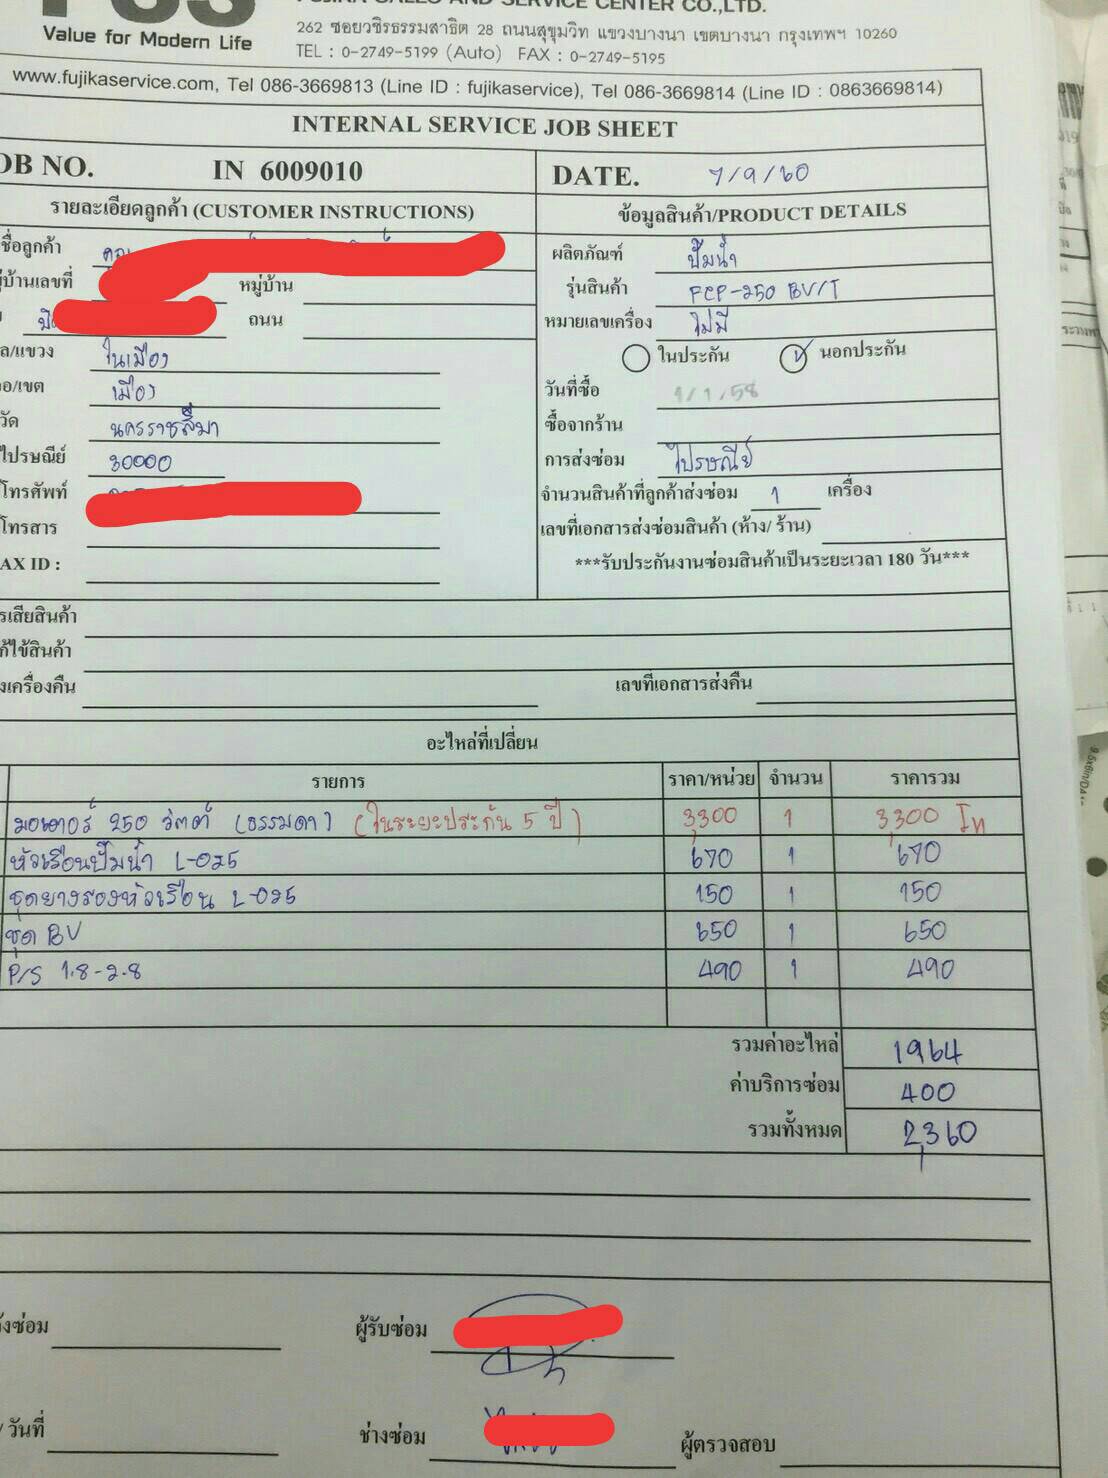 Value for Modern Life
SERVICE CENTER CO.,LTD.
262 ซอยวชิรธรรมสาธิต 28 ถนนสุขุมวิท แขวงบางนา เขตบางนา กรุงเทพฯ 10260
TEL : 0-2749-5199 (Auto) FAX : 0-2749-5195
www.fujikaservice.com, Tel 086-3669813 (Line ID : fujikaservice), Tel 086-3669814 (Line ID : 0863669814)
INTERNAL SERVICE JOB SHEET
OB NO. IN 6009010
DATE. 7/9/60
รายละเอียดลูกค้า (CUSTOMER INSTRUCTIONS)
ข้อมูลสินค้า/PRODUCT DETAILS
ชื่อลูกค้า
ผลิตภัณฑ์ ปั๊มน้ำ
บ้านเลขที่ หมู่บ้าน
รุ่นสินค้า FCP-250 BV/T
ถนน
หมายเลขเครื่อง ไม่มี
ล/แขวง ในเมือง
ในประกัน นอกประกัน
อ/เขต เมือง
วันที่ซื้อ 1/1/58
วัด นครราชสีมา
ซื้อจากร้าน
ไปรษณีย์ 30000
การส่งซ่อม ไปรษณีย์
โทรศัพท์
จำนวนสินค้าที่ลูกค้าส่งซ่อม 1 เครื่อง
โทรสาร
เลขที่เอกสารส่งซ่อมสินค้า (ห้าง/ ร้าน)
AX ID :
***รับประกันงานซ่อมสินค้าเป็นระยะเวลา 180 วัน***
รเสียสินค้า
ก้ไข้สินค้า
งเครื่องคืน เลขที่เอกสารส่งคืน
อะไหล่ที่เปลี่ยน
รายการ ราคา/หน่วย จำนวน ราคารวม
มอเตอร์ 250 วัตต์ (ธรรมดา) (ในระยะประกัน 5 ปี) 3,300 1 3,300 In
หัวเรือนปั๊มน้ำ L-025 670 1 670
ชุดยางรองหัวเรือน L-025 150 1 150
ชุด BV 650 1 650
P/S 1.8-2.8 490 1 490
รวมค่าอะไหล่ 1964
ค่าบริการซ่อม 400
รวมทั้งหมด 2,360
งซ่อม ผู้รับซ่อม
/ วันที่ ช่างซ่อม ผู้ตรวจสอบ